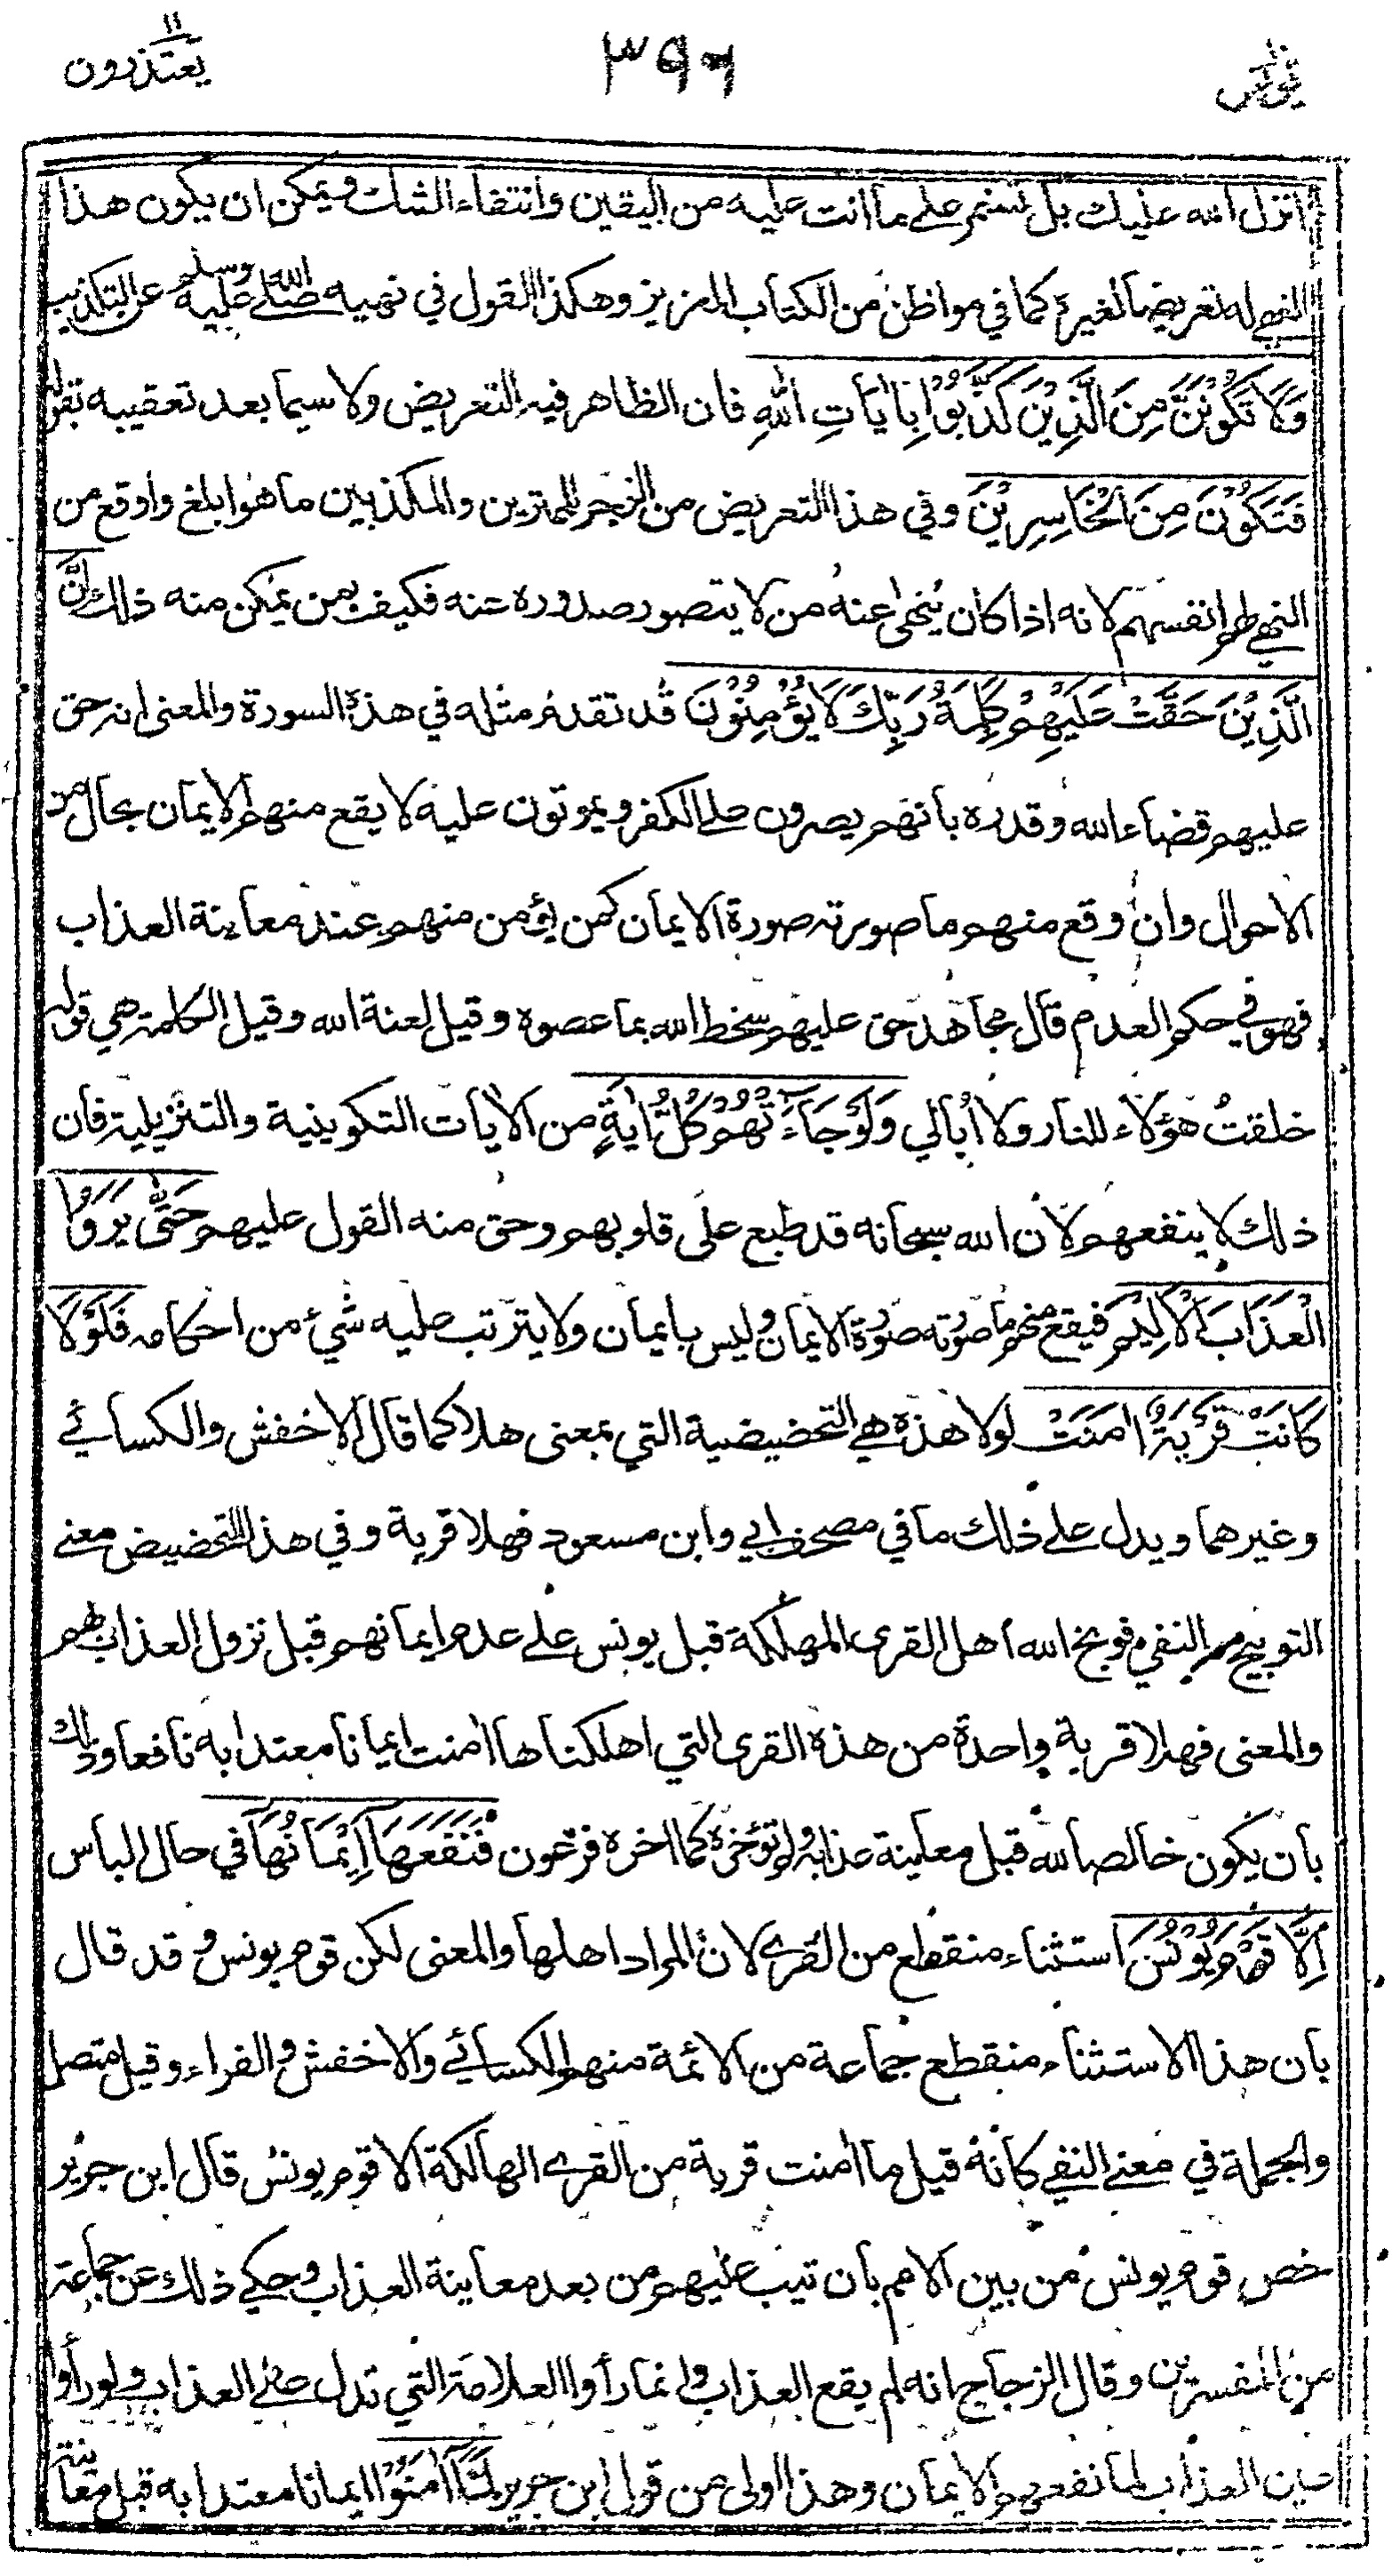 يونس ١٠
٣٩٦
يعتذرون ١١
انزل الله عليك بل تستمر على ما انت عليه من اليقين وانتفاء الشك ويمكن ان يكون هذا
النهي له تعريضا لغيره كما في مواطن من الكتاب العزيز وهكذا القول في نهيه صلى الله عليه وسلم عن التكذيب
وَلَا تَكُوْنَنَّ مِنَ الَّذِيْنَ كَذَّبُوْا بِاٰيَاتِ اللهِ فان الظاهر فيه التعريض ولا سيما بعد تعقيبه بقوله
فَتَكُوْنَ مِنَ الْخَاسِرِيْنَ وفي هذا التعريض من الزجر للممترين والمكذبين ما هو ابلغ واوقع من
النهي لهم انفسهم لانه اذا كان ينهى عنه من لا يتصور صدوره عنه فكيف بمن يمكن منه ذلك اِنَّ
الَّذِيْنَ حَقَّتْ عَلَيْهِمْ كَلِمَةُ رَبِّكَ لَا يُؤْمِنُوْنَ قد تقدم مثله في هذه السورة والمعنى انه حق
عليهم قضاء الله وقدره بانهم يصرون على الكفر ويموتون عليه لا يقع منهم الايمان بحال من
الاحوال وان وقع منهم ما صورته صورة الايمان كمن يؤمن منهم عند معاينة العذاب
فهو في حكم العدم قال مجاهد حق عليهم سخط الله بما عصوه وقيل لعنة الله وقيل الكلمة هي قوله
خلقت هؤلاء للنار ولا أبالي وَلَوْ جَآءَتْهُمْ كُلُّ اٰيَةٍ من الآيات التكوينية والتنزيلية فان
ذلك لا ينفعهم لان الله سبحانه قد طبع على قلوبهم وحق منه القول عليهم حَتّٰى يَرَوُا
الْعَذَابَ الْاَلِيْمَ فيقع منهم ما صورته صورة الايمان وليس بايمان ولا يترتب عليه شيء من احكامه فَلَوْلَا
كَانَتْ قَرْيَةٌ اٰمَنَتْ لولا هذه هي التحضيضية التي بمعنى هلا كما قال الاخفش والكسائي
وغيرهما ويدل على ذلك ما في مصحف ابي وابن مسعود فهلا قرية وفي هذا التحضيض معنى
التوبيخ مع النفي فوبخ الله اهل القرى المهلكة قبل يونس على عدم ايمانهم قبل نزول العذاب بهم
والمعنى فهلا قرية واحدة من هذه القرى التي اهلكناها اٰمنت ايمانا معتدا به نافعا وذلك
بان يكون خالصا لله قبل معاينة عذابه ولم تؤخره كما اخره فرعون فَنَفَعَهَا اِيْمَانُهَا في حال الباس
اِلَّا قَوْمَ يُوْنُسَ استثناء منقطع من القرى لان المراد اهلها والمعنى لكن قوم يونس وقد قال
بان هذا الاستثناء منقطع جماعة من الائمة منهم الكسائي والاخفش والفراء وقيل متصل
والجملة في معنى النفي كانه قيل ما اٰمنت قرية من القرى الهالكة الا قوم يونس قال ابن جرير
خص قوم يونس من بين الامم بان تيب عليهم من بعد معاينة العذاب وحكي ذلك عن جماعة
من المفسرين وقال الزجاج انه لم يقع العذاب وانما رأوا العلامة التي تدل على العذاب ولو رأوا
عين العذاب لما نفعهم الايمان وهذا اولى من قول ابن جرير لَمَّآ اٰمَنُوْا ايمانا معتدا به قبل معاينة